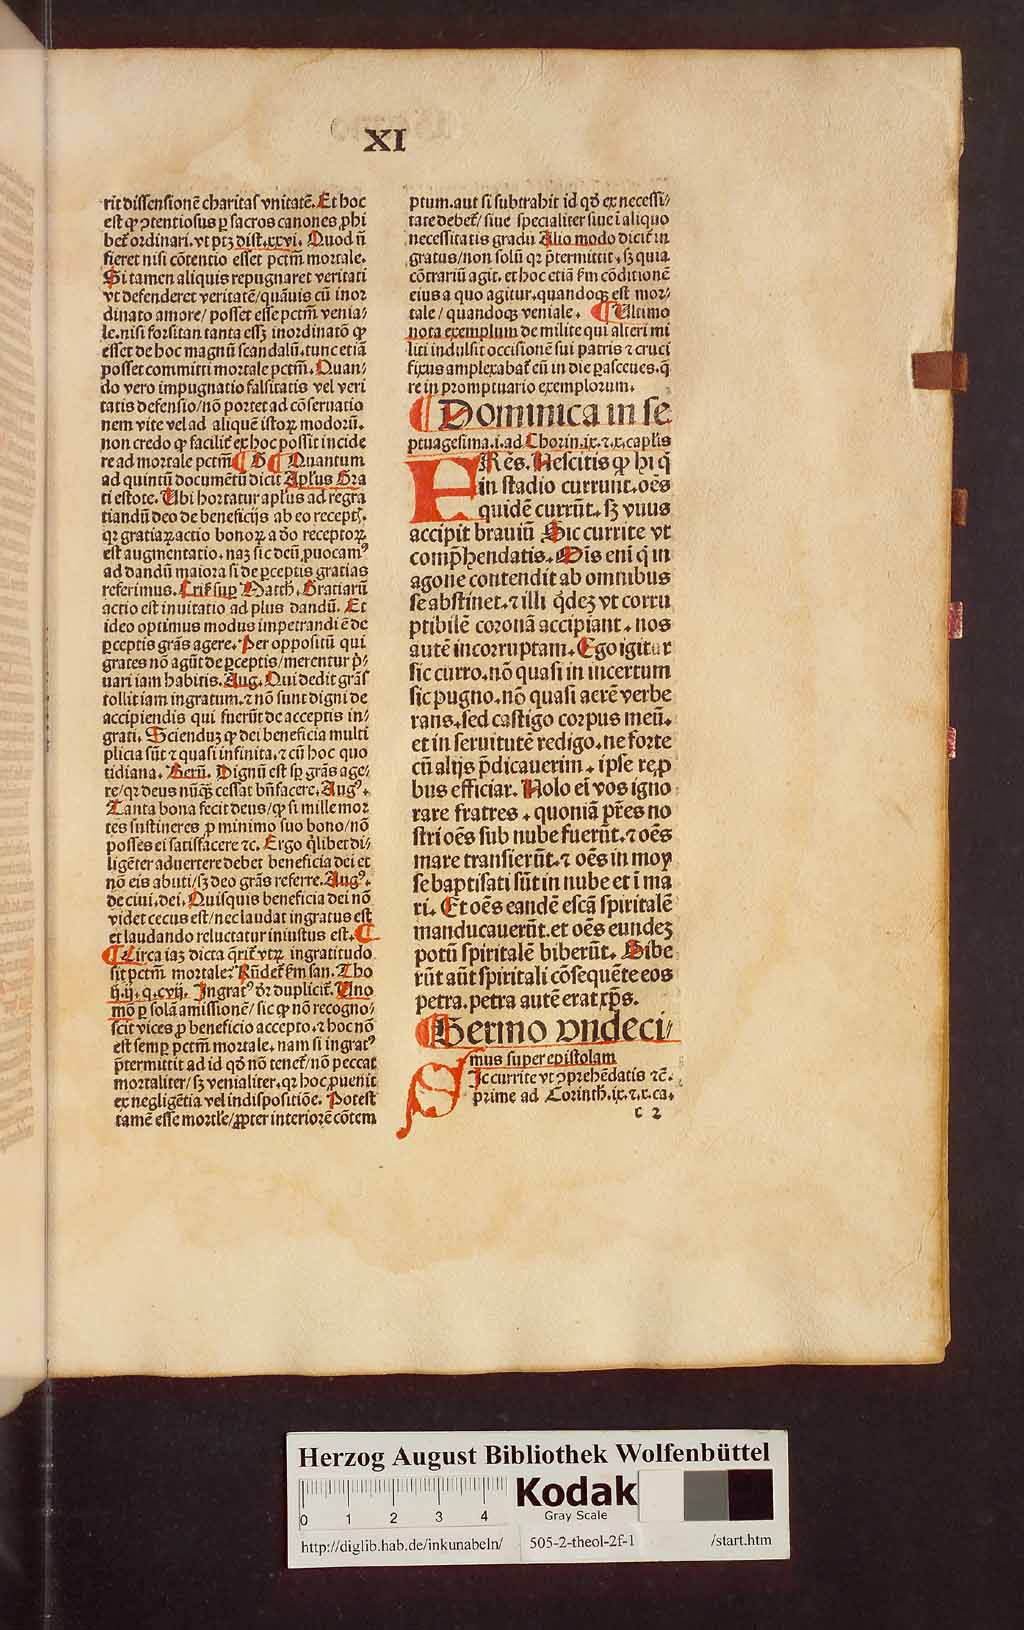 XI
rit dissensionē charitas vnitatē. Et hoc
est ꝙ ↄtentiosus ꝑ sacros canones ꝓhi
bet̄ ordinari. vt ptꝫ dist. xxvi. Quod ū
fieret nisi cōtentio esset pctm̄ mortale.
Si tamen aliquis repugnaret veritati
vt defenderet veritatē/quāuis cū inor
dinato amore/posset esse pctm̄ venia/
le. nisi forsitan tanta essꝫ inordinatō ꝙ
esset de hoc magnū scandalū. tunc etiā
posset committi mortale pctm̄. Quan/
do vero impugnatio falsitatis vel veri
tatis defensio/nō portet ad cōseruatio
nem vite vel ad aliquē istoꝝ modorū.
non credo ꝙ facilit̄ ex hoc possit incide
re ad mortale pctm̄ ¶ G ¶ Quantum
ad quintū documētū dicit Apl'us Gra
ti estote. Ubi hortatur apl'us ad regra
tiandū deo de beneficijs ab eo recept.
qꝛ gratiaꝝ actio bonoꝝ a deo receptoꝝ
est augmentatio. naꝫ sic deū ꝓuocamꝰ
ad dandū maiora si de ꝑceptis gratias
referimus. Cris̄ sup Matth. Gratiarū
actio est inuitatio ad plus dandū. Et
ideo optimus modus impetrandi ē de
ꝑceptis grās agere. Per oppositū qui
grates nō agūt de ꝑceptis/merentur p̄/
uari iam habitis. Aug. Qui dedit grās
tollit iam ingratum. ⁊ nō sunt digni de
accipiendis qui fuerūt de acceptis in/
grati. Scienduꝫ ꝙ dei beneficia multi
plicia sūt ⁊ quasi infinita. ⁊ cū hoc quo
tidiana. Bern̄. Dignū est sꝑ grās age/
re/qꝛ deus nūꝙ̄ cessat bn̄facere. Augꝰ.
Tanta bona fecit deus/ꝙ si mille mor
tes sustineres ꝓ minimo suo bono/nō
posses ei satisfacere ⁊c. Ergo q̄libet di/
ligēter aduertere debet beneficia dei et
nō eis abuti/sꝫ deo grās referre. Augꝰ.
de ciui. dei. Quisquis beneficia dei nō
videt cecus est/nec laudat ingratus est
et laudando reluctatur iniustus est. ¶
¶ Circa iaꝫ dicta q̄rit̄ vtꝝ ingratitudo
sit pctm̄ mortale? Rn̄det̄ ẜm san. Tho
ij. ij. q. cvij. Ingratꝰ dꝛ duplicit̄. Uno
mō ꝑ solā amissionē/sic ꝙ nō recogno/
scit vices ꝓ beneficio accepto. ⁊ hoc nō
est semꝑ pctm̄ mortale. nam si ingratꝰ
p̄termittit ad id qd̄ nō tenet̄/nō peccat
mortaliter/sꝫ venialiter. qꝛ hoc ꝓuenit
ex negligētia vel indispositiōe. Potest
tamē esse mortl'e/ꝓpter interiorē cōtem
ptum. aut si subtrahit id qd̄ ex necessi/
tate debet̄/siue specialiter siue ī aliquo
necessitatis gradu Alio modo dicit̄ in
gratus/non solū qꝛ p̄termittit. sꝫ quia
cōtrariū agit. et hoc etiā ẜm cōditionē
eius a quo agitur. quandoqꝫ est mor/
tale/quandoqꝫ veniale. ¶ Ultimo
nota exemplum de milite qui alteri mi
liti indulsit occisionē sui patris ⁊ cruci
fixus amplexabat̄ eū in die ꝑasceues. q̄
re in promptuario exemplorum.
¶ Dominica in se
ptuagesima. i. ad Chorin. ix. ⁊. x. caplis
FRēs. Nescitis ꝙ hi q̄
in stadio currunt. oēs
quidē currūt. sꝫ vnus
accipit brauiū Sic currite vt
comp̄hendatis. Oīs eni q̄ in
agone contendit ab omnibus
se abstinet. ⁊ illi q̄deꝫ vt corru
ptibilē coronā accipiant. nos
autē incorruptam. Ego igitur
sic curro. nō quasi in incertum
sic pugno. nō quasi aerē verbe
rans. sed castigo corpus meū.
et in seruitutē redigo. ne forte
cū alijs p̄dicauerim. ipse rep
bus efficiar. Nolo eī vos igno
rare fratres. quoniā pr̄es no
stri oēs sub nube fuerūt. ⁊ oēs
mare transierūt. ⁊ oēs in moy
se baptisati sūt in nube et ī ma
ri. Et oēs eandē escā spiritalē
manducauerūt. et oēs eundeꝫ
potū spiritalē biberūt. Bibe
rūt aūt spiritali cōsequēte eos
petra. petra autē erat xp̄s.
¶ Sermo vndeci/
mus super epistolam
SIc currite vt ↄprehēdatis ⁊c.
prime ad Corinth. ix. ⁊. x. ca.
c 2
Herzog August Bibliothek Wolfenbüttel
0 1 2 3 4
Kodak
Gray Scale
http://diglib.hab.de/inkunabeln/ 505-2-theol-2f-1 /start.htm